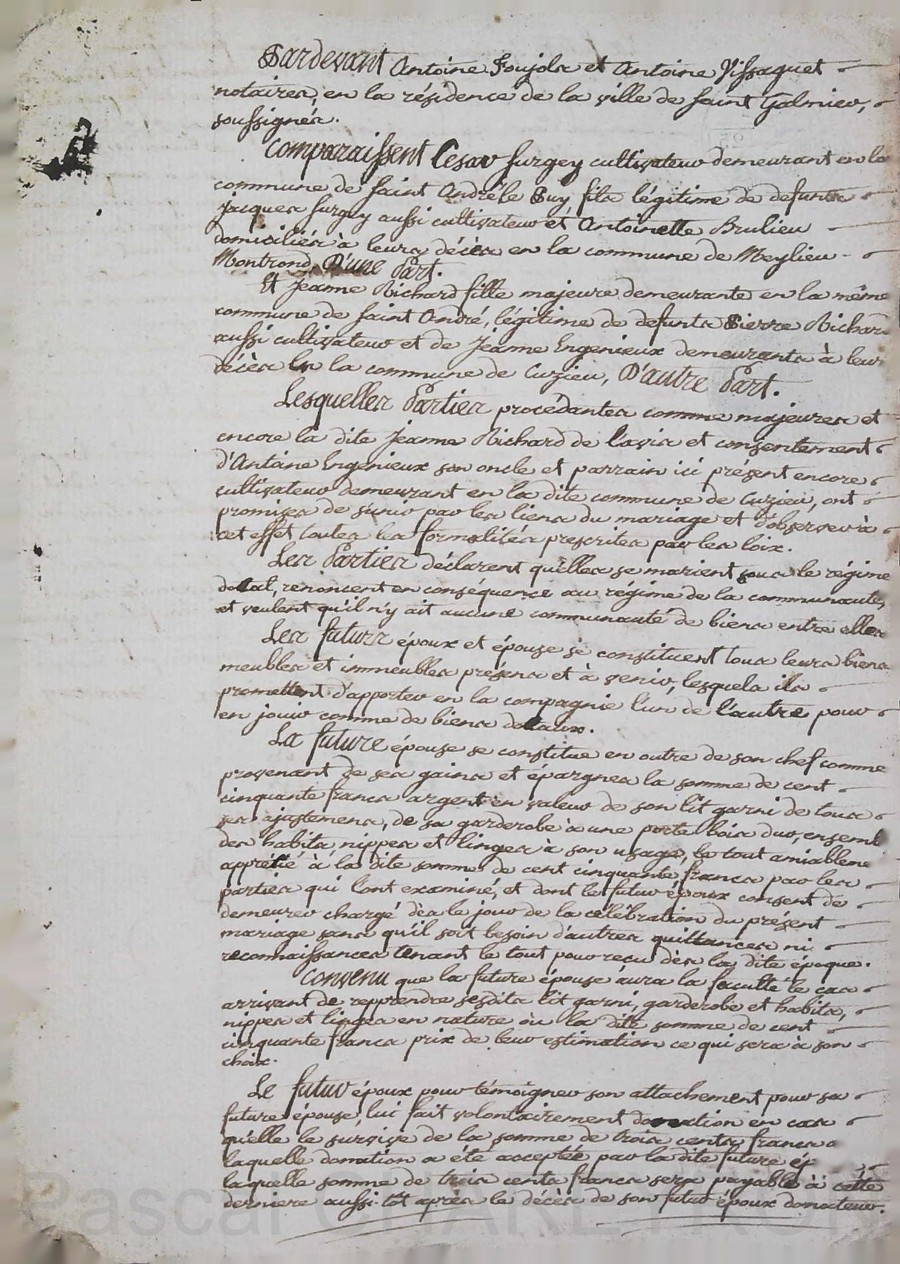 Pardevant Antoine Foujols et Antoine Vissaguet
notaires, en la résidence de la ville de Saint Galmier,
soussignés.
Comparaissent Cesar Surgey cultivateur demeurant en la
commune de Saint André le Puy fils légitime de defunts
Jacques Surgey aussi cultivateur et Antoinette Brulieu
domiciliés à leurs décès en la commune de Meylieu
Montrond D'une Part.
Et Jeanne Richard fille majeure demeurante en la même
commune de Saint André, légitime de defunts Pierre Richard
aussi cultivateur et de Jeanne Engenieux demeurants à leur
décès en la commune de Cuzieu, D'autre Part.
Lesquelles Parties procédantes comme majeures et
encore la dite Jeanne Richard de l'avis et consentement
d'Antoine Engenieux son oncle et parrain ici présent encore
cultivateur demeurant en la dite commune de Cuzieu, ont
promises de s'unir par les liens du mariage et d'observer à
cet effet toutes les formalités prescrites par les loix.
Les Parties déclarent qu'elles se marient sous le régime
dotal, renoncent en conséquence au régime de la communauté,
et veulent qu'il n'y ait aucune communauté de biens entre elles
Les futurs époux et épouse se constituent tous leurs biens
meubles et immeubles présens et à venir, lesquels ils
promettent d'apporter en la compagnie l'un de l'autre pour
en jouir comme de biens dotaux.
La future épouse se constitue en outre de son chef comme
provenant de ses gains et épargnes la somme de cent
cinquante francs argent en valeur de son lit garni de tous
ses ajustemens, de sa garderobe à une porte bois dur, ensembl
des habits nippes et linges à son usage, le tout amiableme
appretié à la dite somme de cent cinquante francs par les
parties qui l'ont examiné, et dont le futur époux consent de
demeurer chargé dès le jour de la célébration du présent
mariage sans qu'il soit besoin d'autres quittances ni
reconnaissances tenant le tout pour reçu dès la dite époque.
Convenu que la future épouse aura la faculté le cas
arrivant de reprendre sesdits lit garni, garderobe et habits,
nippes et linges en nature ou la dite somme de cent
cinquante francs prix de leur estimation ce qui sera à son
choix.
Le futur époux pour témoigner son attachement pour sa
future épouse, lui fait volontairement donation en cas
qu'elle le survive de la somme de trois cents francs
laquelle donation a été acceptée par la dite future ép
laquelle somme de trois cents francs sera payable à cette
derniere aussi-tôt après le décès de son futur époux donateur.